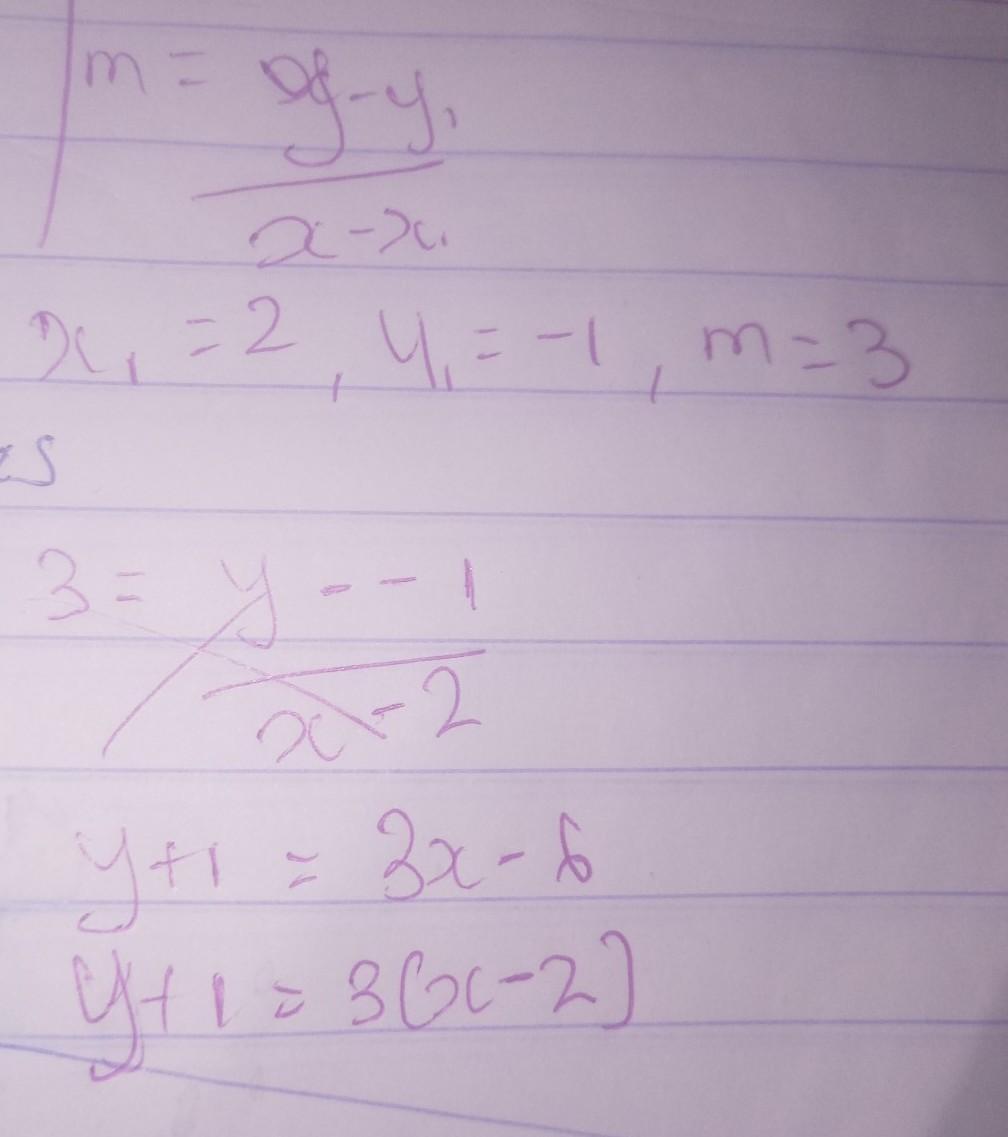 m = y - y₁
x - x₁
x₁ = 2 , y₁ = -1 , m = 3
es
3 = y - - 1
x - 2
y + 1 = 3x - 6
y + 1 = 3(x - 2)